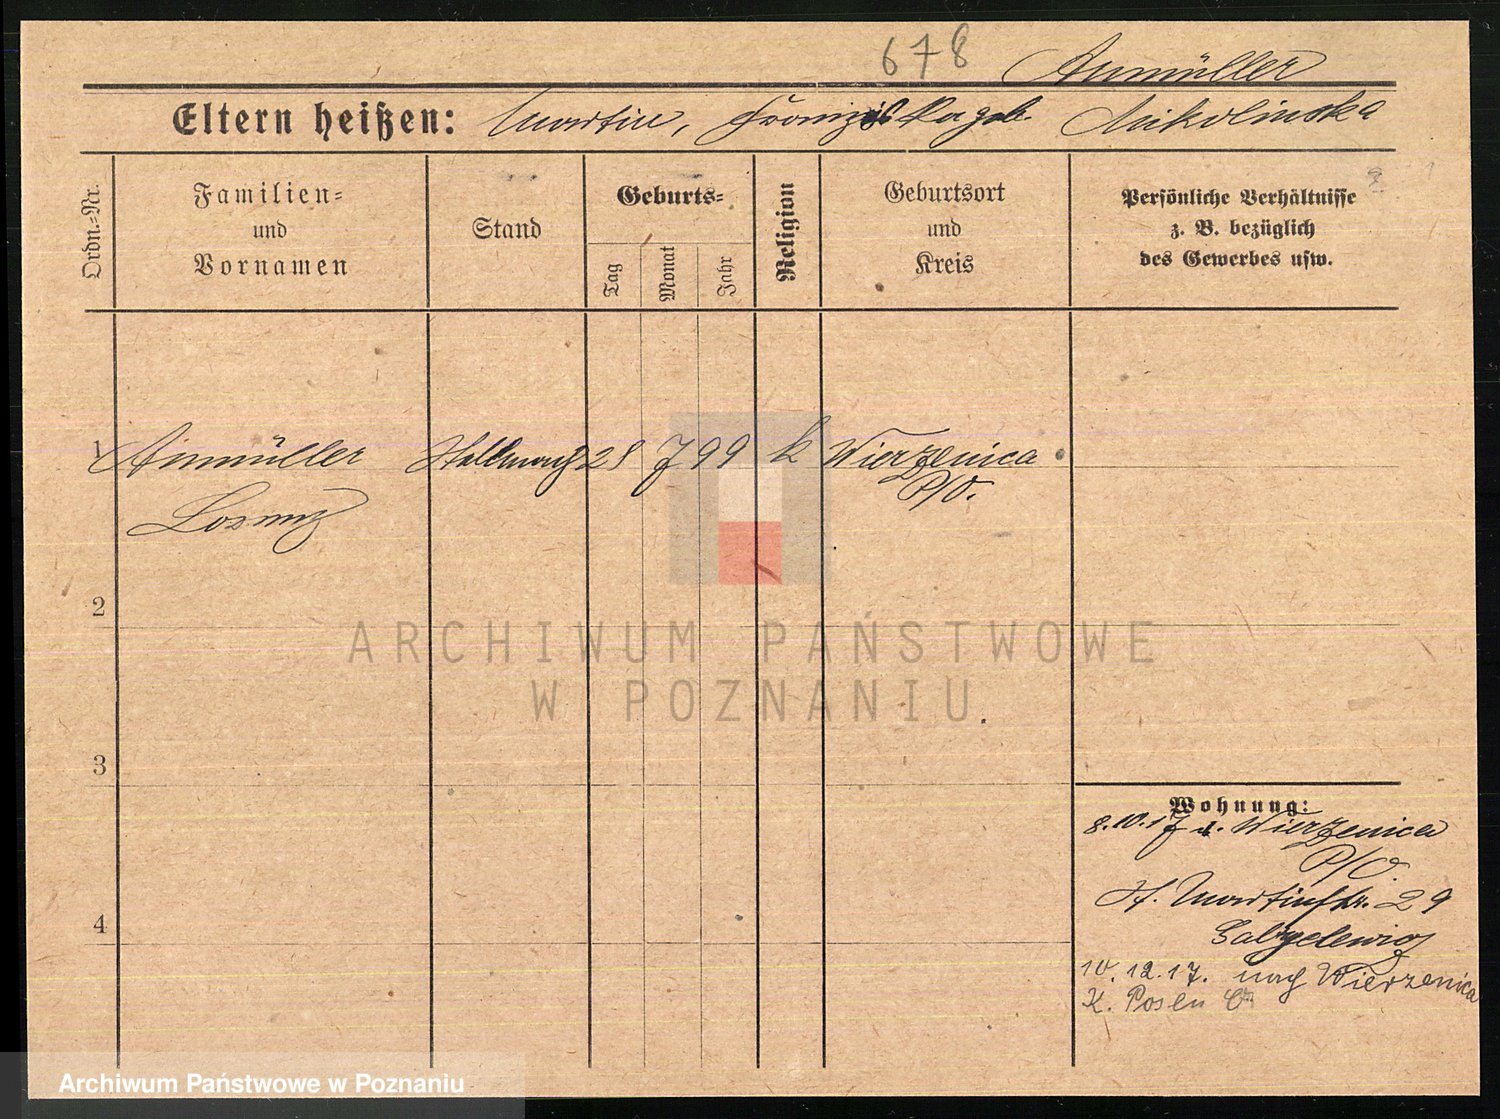 678 Aumüller
Eltern heißen: Martin, Franziska geb. Mikolinska
Ordn.=Nr.
Familien=
und
Vornamen
Stand
Geburts=
Tag
Monat
Jahr
Religion
Geburtsort
und
Kreis
Persönliche Verhältnisse
z. B. bezüglich
des Gewerbes usw.
1 Ainmüller 28 7 99 k Wierzenica
P/O.
Lorenz
2
3
4
Wohnung:
8.10.17 v. Wierzenica
P/O.
St. Martinstr. 29
10.12.17. nach Wierzenica
K. Posen O
ARCHIWUM PAŃSTWOWE
W POZNANIU
Archiwum Państwowe w Poznaniu